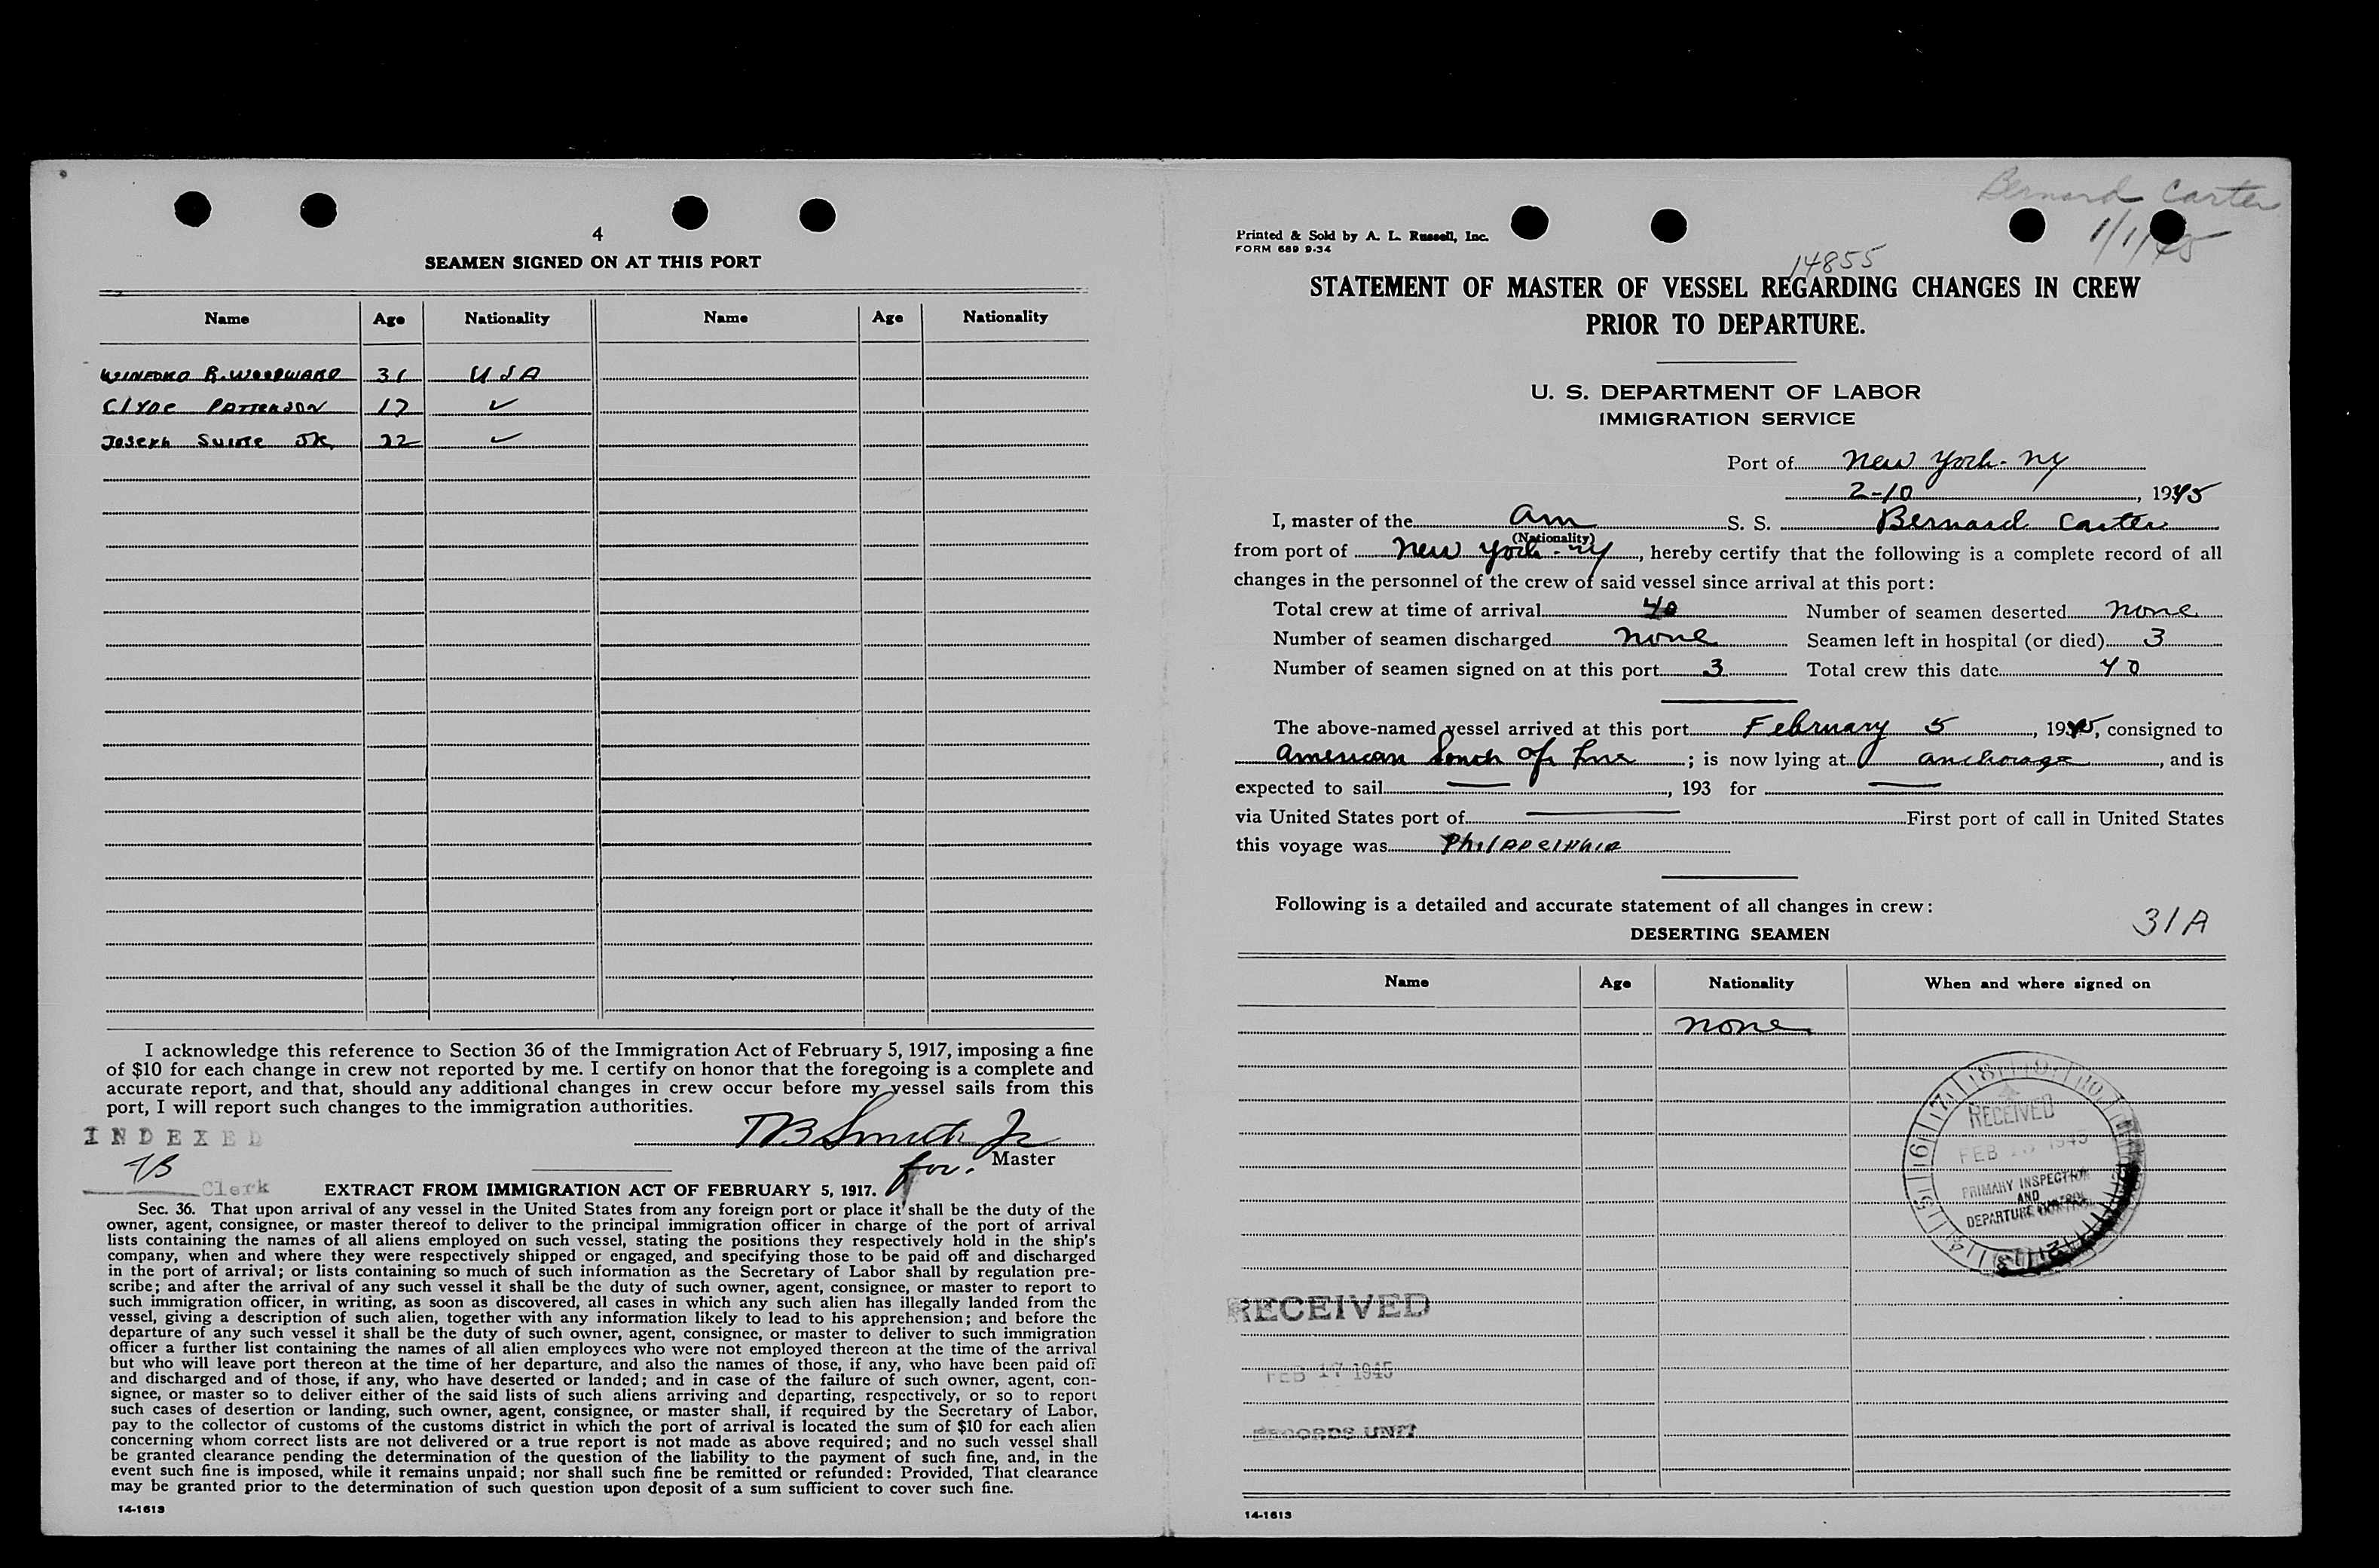 4
SEAMEN SIGNED ON AT THIS PORT
Name Age Nationality Name Age Nationality
WINFORD R. WOODWARD 31 USA
Clyde PATTERSON 17 ✓
Joseph JR. 22 ✓
I acknowledge this reference to Section 36 of the Immigration Act of February 5, 1917, imposing a fine
of $10 for each change in crew not reported by me. I certify on honor that the foregoing is a complete and
accurate report, and that, should any additional changes in crew occur before my vessel sails from this
port, I will report such changes to the immigration authorities.
INDEXED
TB Smith Jr
for. Master
Clerk
EXTRACT FROM IMMIGRATION ACT OF FEBRUARY 5, 1917.
Sec. 36. That upon arrival of any vessel in the United States from any foreign port or place it shall be the duty of the
owner, agent, consignee, or master thereof to deliver to the principal immigration officer in charge of the port of arrival
lists containing the names of all aliens employed on such vessel, stating the positions they respectively hold in the ship's
company, when and where they were respectively shipped or engaged, and specifying those to be paid off and discharged
in the port of arrival; or lists containing so much of such information as the Secretary of Labor shall by regulation pre-
scribe; and after the arrival of any such vessel it shall be the duty of such owner, agent, consignee, or master to report to
such immigration officer, in writing, as soon as discovered, all cases in which any such alien has illegally landed from the
vessel, giving a description of such alien, together with any information likely to lead to his apprehension; and before the
departure of any such vessel it shall be the duty of such owner, agent, consignee, or master to deliver to such immigration
officer a further list containing the names of all alien employees who were not employed thereon at the time of the arrival
but who will leave port thereon at the time of her departure, and also the names of those, if any, who have been paid off
and discharged and of those, if any, who have deserted or landed; and in case of the failure of such owner, agent, con-
signee, or master so to deliver either of the said lists of such aliens arriving and departing, respectively, or so to report
such cases of desertion or landing, such owner, agent, consignee, or master shall, if required by the Secretary of Labor,
pay to the collector of customs of the customs district in which the port of arrival is located the sum of $10 for each alien
concerning whom correct lists are not delivered or a true report is not made as above required; and no such vessel shall
be granted clearance pending the determination of the question of the liability to the payment of such fine, and, in the
event such fine is imposed, while it remains unpaid; nor shall such fine be remitted or refunded: Provided, That clearance
may be granted prior to the determination of such question upon deposit of a sum sufficient to cover such fine.
14-1613
Bernard Carter
1/1/45
Printed & Sold by A. L. Russell, Inc.
FORM 689 9-34
14855
STATEMENT OF MASTER OF VESSEL REGARDING CHANGES IN CREW
PRIOR TO DEPARTURE.
U. S. DEPARTMENT OF LABOR
IMMIGRATION SERVICE
Port of New York - NY
2-10, 1945
I, master of the Am S. S. Bernard Carter
(Nationality)
from port of New York - NY, hereby certify that the following is a complete record of all
changes in the personnel of the crew of said vessel since arrival at this port:
Total crew at time of arrival 40 Number of seamen deserted none
Number of seamen discharged none Seamen left in hospital (or died) 3
Number of seamen signed on at this port 3 Total crew this date 40
The above-named vessel arrived at this port February 5, 1945, consigned to
American South Line; is now lying at anchorage, and is
expected to sail —, 193 for —
via United States port of — First port of call in United States
this voyage was Philadelphia
Following is a detailed and accurate statement of all changes in crew:
31A
DESERTING SEAMEN
Name Age Nationality When and where signed on
none
RECEIVED
FEB 1945
PRIMARY INSPECTION
AND
DEPARTURE CONTROL
RECEIVED
FEB 17 1945
RECORDS UNIT
14-1613